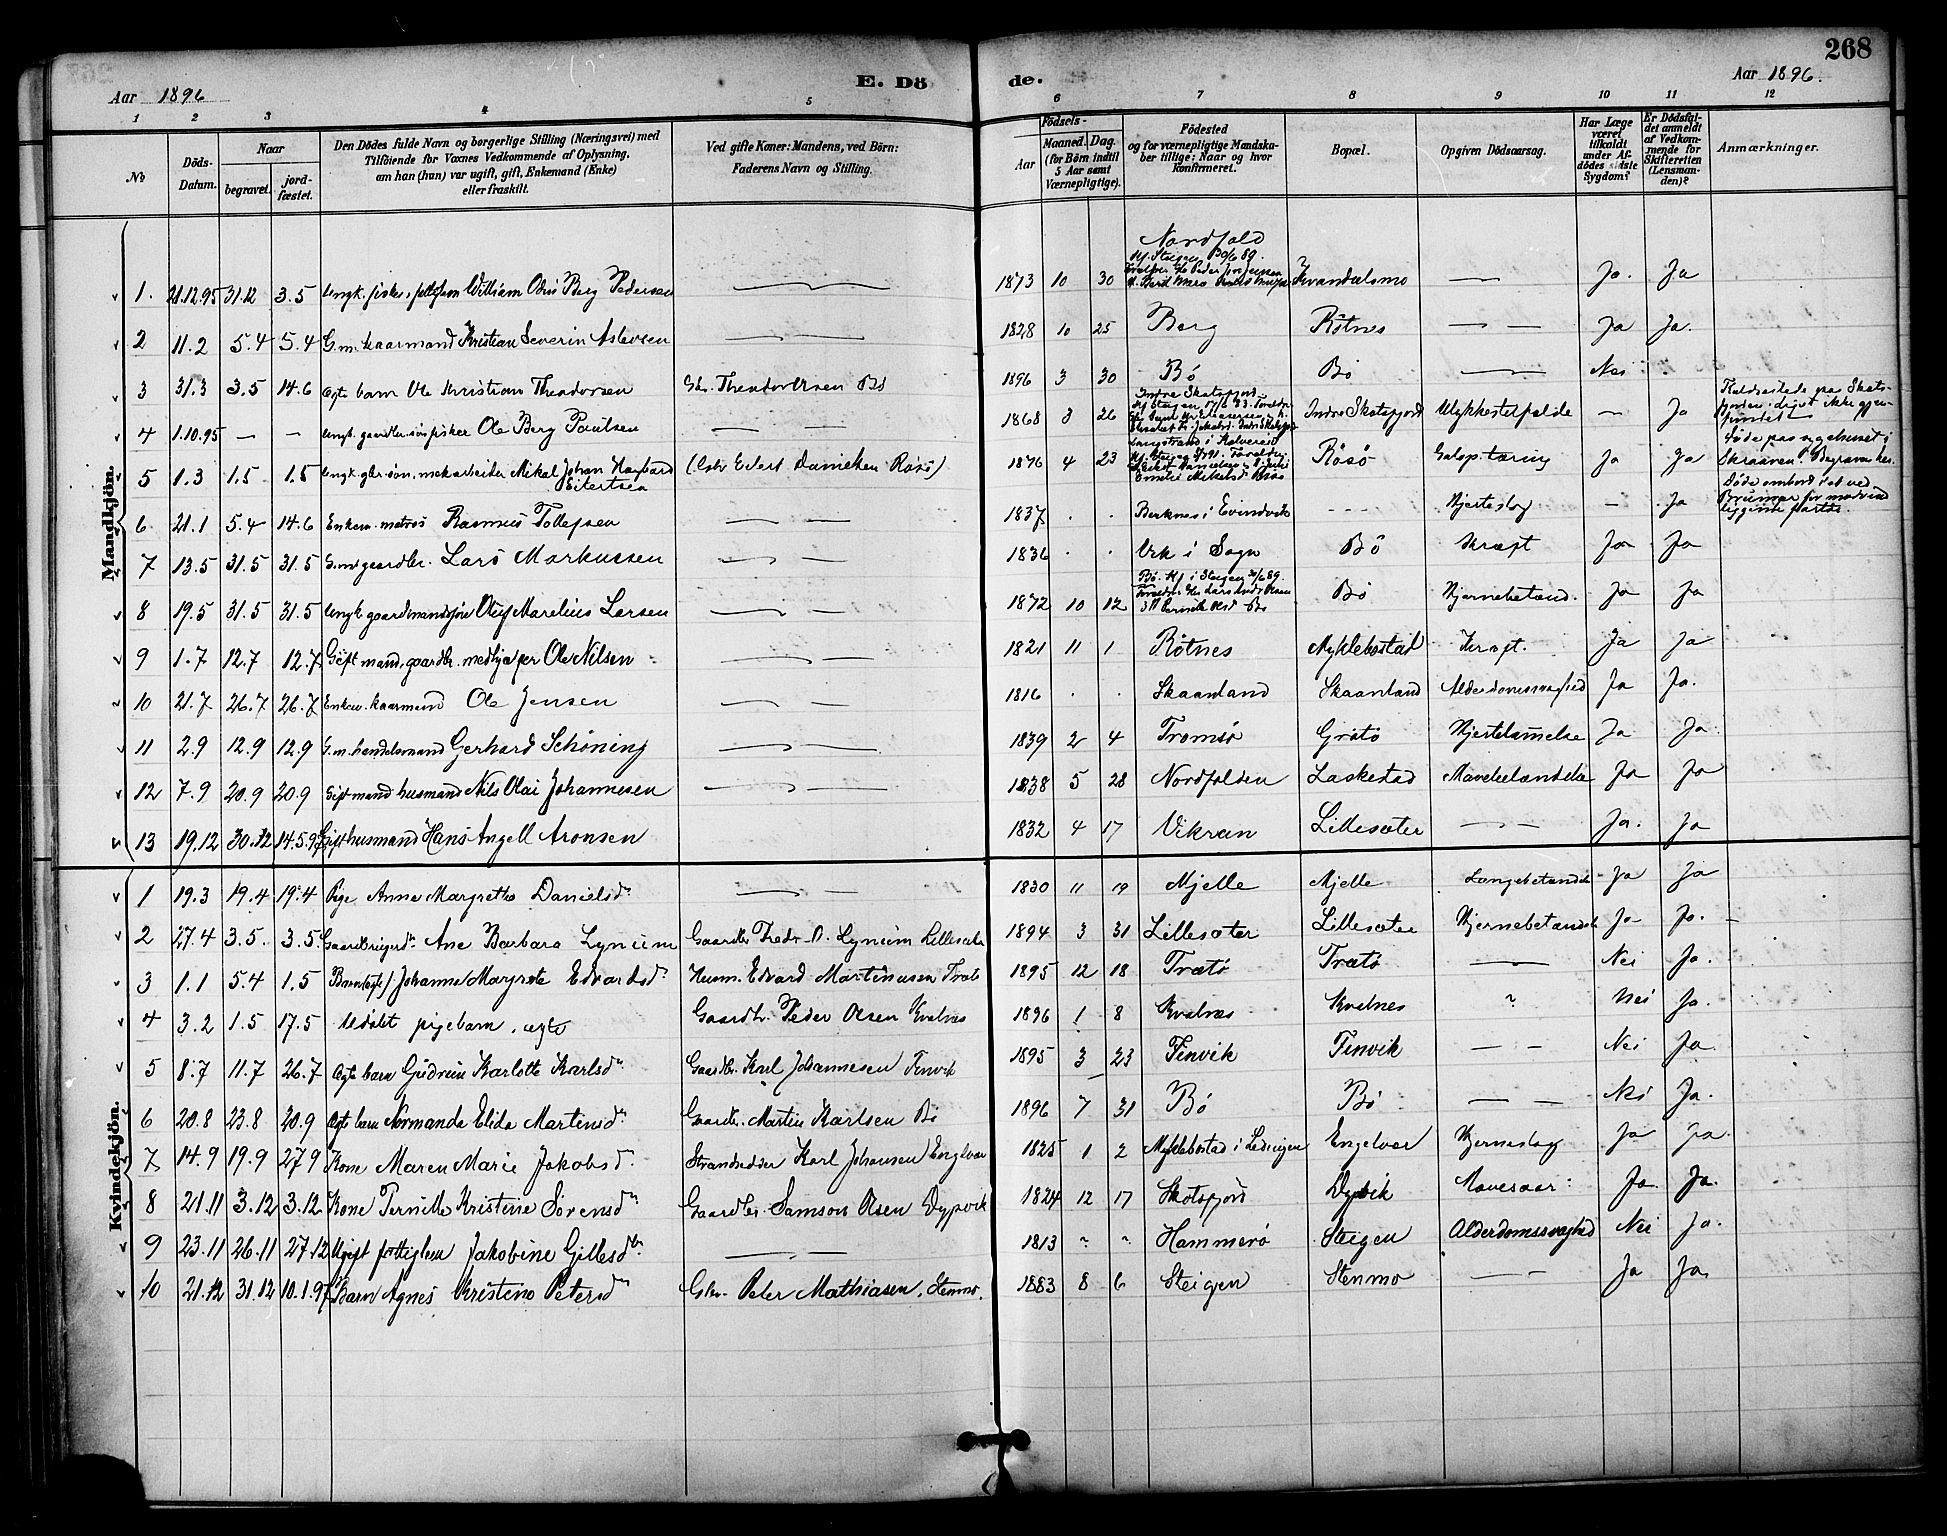 268
Aar 1896
E. Döde.
Aar 1896.
1 2 3 4 5 6 7 8 9 10 11 12
No
Döds-Datum.
Naar
begravet.
jord-fæstet.
Den Dödes fulde Navn og borgerlige Stilling (Næringsvei) med
Tilföiende for Voxnes Vedkommende af Oplysning,
om han (hun) var ugift, gift, Enkemand (Enke)
eller fraskilt.
Ved gifte Koner: Mandens, ved Börn:
Faderens Navn og Stilling.
Födsels-
Aar
Maaned. Dag.
(for Börn indtil
5 Aar samt
Værnepligtige).
Födested
og for værnepligtige Mandska-
ber tillige: Naar og hvor
konfirmeret.
Bopæl.
Opgiven Dödsaarsag.
Har Læge
været
tilkaldt
under Af-
dödes sidste
Sygdom?
Er Dödsfal-
det anmeldt
af Vedkom-
mende for
Skifteretten
(Lensman-
den)?
Anmærkninger.
Mandkjön.
1. 21.12.95 31.12 3.5 Ungk. fisker William Odin Berg Pedersen 1873 10 30 Nordfold Kvandalsmo Ja. Ja
2 11.2 5.4 5.4 G.m. kaarmand Kristian Severin Aslevsen 1828 10 25 Berg Rötnes Ja Ja.
3 31.3 3.5 14.6 Ægte barn Ole Kristian Theodorsen Theodor Olsen Bö 1896 3 30 Bö Bö Nei
4 1.10.95 — — Ole Berg Paulsen 1868 3 26 Indre Skotsfjord Indre Skotsfjord Ulykkestilfælde — Ja
5 1.3 1.5 1.5 Mikal Johan Hagbard Eilertsen (Gbr Eilert Danielsen Rösö) 1876 4 23 Rösö Galop. tæring Ja Ja
6 21.1 5.4 14.6 Enkem. matros Rasmus Tollefsen 1837 . . Berknes i Evindvik Hjerteslag — Ja
7 13.5 31.5 31.5 G.m. gaardbr. Lars Markussen 1836 . . i Sogn Bö Kræft Ja Ja
8 19.5 31.5 31.5 Ungk. gaardmandssön Oluf Marelius Larsen 1872 10 12 Bö. Kf. i Steigen 30/6 89. Bö Hjernebetænd. Ja Ja
9 1.7 12.7 12.7 Gift mand, gaardbr. medhjælper Ole Nilsen 1821 11 1 Rötnes Myklebostad Kræft. Ja Ja
10 21.7 26.7 26.7 Enkem. kaarmand Ole Jensen 1816 . . Skaanland Skaanland Alderdomssvaghed Ja Ja.
11 2.9 12.9 12.9 G.m. handelsmand Gerhard Schöning 1839 2 4 Tromsö Grötö Hjertelammelse Ja Ja
12 7.9 20.9 20.9 Gift mand husmand Nils Olai Johannesen 1838 5 28 Nordfolden Laskestad Ja Ja
13 19.12 30.12 14.5.97 Gift husmand Hans Angell Aronsen 1832 4 17 Vikran Lillesæter Ja. Ja
Kvindekjön.
1 19.3 19.4 19.4 Pige Anne Margrethe Danielsdr 1830 11 19 Mjelle Mjelle Lungebetændelse Ja Ja
2 27.4 3.5. 3.5. Ane Barbara Lynum Gaardbr. Fredr. Lynum Lillesæter 1894 3 31 Lillesæter Lillesæter Hjernebetændelse Ja Ja.
3 1.1 5.4 1.5 Johanne Margrete Edvardsdr Husm. Edvard Martinusen Trætö 1895 12 18 Trætö Trætö Nei Ja.
4 3.2 1.5 17.5 Udöbt pigebarn, ægte Gaardbr. Peder Olsen Kvalnes 1896 1 8 Kvalnes Kvalnes Nei Ja.
5 8.7 11.7 26.7 Ægte barn Gudrun Karlotte Karlsdr Gaardbr. Karl Johannesen Finvik 1895 3 23 Finvik Finvik Nei Ja.
6 20.8 23.8 20.9 Ægte barn Normanda Elida Martinsdr Gaardbr. Martin Karlsen Bö 1896 7 31 Bö Bö Nei Ja.
7 14.9 19.9 27.9 Kone Maren Marie Jakobsdr Strandsidder Karl Johansen Engelvær 1825 1 2 Myklebostad i Lödingen Engelvær Hjerneslag Ja Ja.
8 21.11 3.12 3.12 Kone Pernille Kristine Sörensdr Gaardbr. Samson Olsen Dypvik 1824 12 17 Skotsfjord Dypvik Mavesaar Ja Ja.
9 23.11 26.11 27.12 Ugift fattiglem Jakobine Gillesdtr 1813 Hammerö Steigen Alderdomssvaghed Nei Ja.
10 21.12 31.12 10.1.97 Barn Agnes Kristine Petersdr Gbr. Peter Mathiasen, Stenmo. 1883 8 6 Steigen Stenmo Ja Ja.